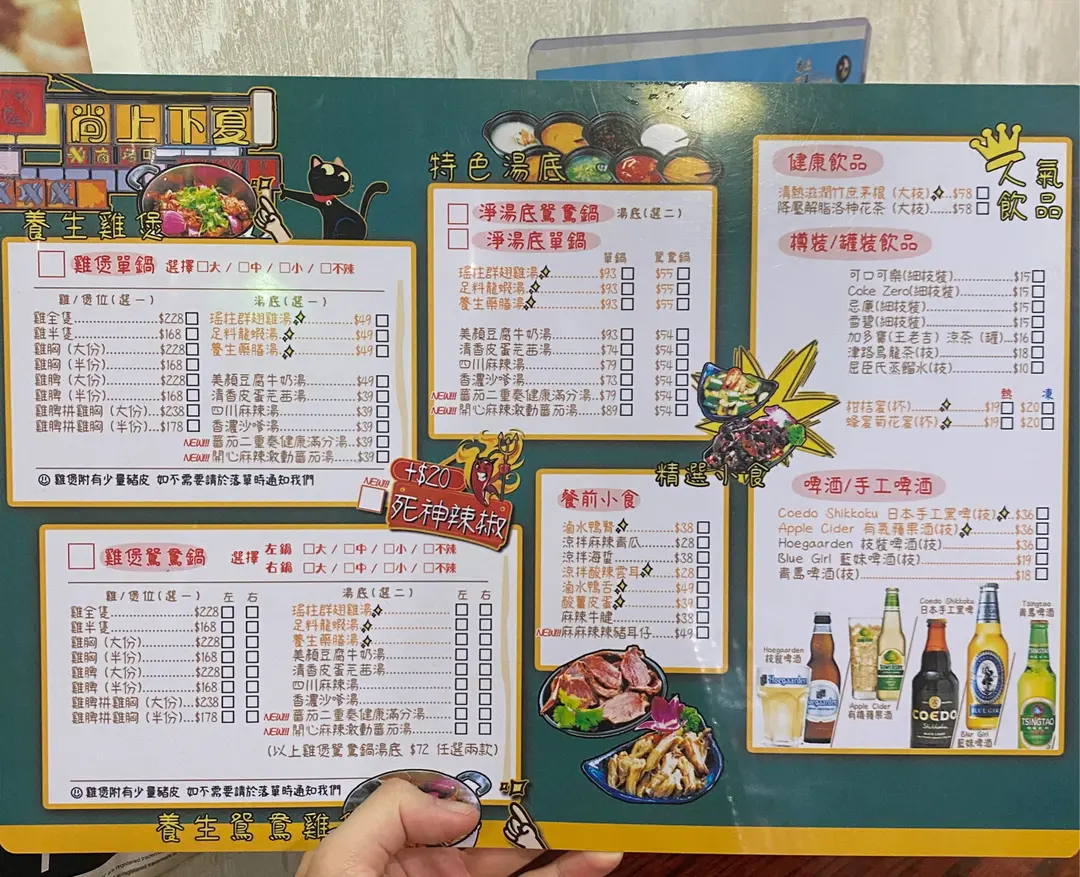 尚上下夏
養生雞煲
雞煲單鍋 選擇 □大 / □中 / □小 / □不辣
雞/煲位(選一) 湯底(選一)
雞全隻..................$228
雞半隻..................$168
雞胸 (大份)..................$228
雞胸 (半份)..................$168
雞脾 (大份)..................$228
雞脾 (半份)..................$168
雞脾拼雞胸 (大份)....$238
雞脾拼雞胸 (半份)....$178
瑤柱群翅雞湯..........$49
足料龍蝦湯..........$49
養生藥膳湯..........$49
美顏豆腐牛奶湯..........$49
清香皮蛋芫茜湯..........$39
四川麻辣湯..........$39
香濃沙嗲湯..........$39
NEW!!! 蕃茄二重奏健康滿分湯..$39
NEW!!! 開心麻辣激動蕃茄湯....$39
雞煲附有少量豬皮 如不需要請於落單時通知我們
NEW!!! +$20
死神辣椒
雞煲鴛鴦鍋 選擇 左鍋 □大 / □中 / □小 / □不辣
右鍋 □大 / □中 / □小 / □不辣
雞/煲位(選一) 左 右 湯底(選二) 左 右
雞全隻..................$228
雞半隻..................$168
雞胸 (大份)..................$228
雞胸 (半份)..................$168
雞脾 (大份)..................$228
雞脾 (半份)..................$168
雞脾拼雞胸 (大份)....$238
雞脾拼雞胸 (半份)....$178
瑤柱群翅雞湯
足料龍蝦湯
養生藥膳湯
美顏豆腐牛奶湯
清香皮蛋芫茜湯
四川麻辣湯
香濃沙嗲湯
NEW!!! 蕃茄二重奏健康滿分湯
NEW!!! 開心麻辣激動蕃茄湯
(以上雞煲鴛鴦鍋湯底 $72 任選兩款)
雞煲附有少量豬皮 如不需要請於落單時通知我們
養生鴛鴦雞
特色湯底
淨湯底鴛鴦鍋 湯底(選二)
淨湯底單鍋
單鍋 鴛鴦鍋
瑤柱群翅雞湯..........$93 $55
足料龍蝦湯..........$93 $55
養生藥膳湯..........$93 $55
美顏豆腐牛奶湯..........$93 $54
清香皮蛋芫茜湯..........$74 $54
四川麻辣湯..........$79 $54
香濃沙嗲湯..........$73 $54
NEW!!! 蕃茄二重奏健康滿分湯..$79 $54
NEW!!! 開心麻辣激動蕃茄湯....$89 $54
精選小食
餐前小食
滷水鴨腎..........$38
涼拌麻辣青瓜..........$28
涼拌海蜇..........$38
涼拌酸辣雲耳..........$28
滷水鴨舌..........$49
酸薑皮蛋..........$39
麻辣牛𦟌..........$38
NEW!!! 麻麻辣辣豬耳仔....$49
人氣飲品
健康飲品
清熱滋潤竹庶茅根 (大枝) $58
降壓解脂洛神花茶 (大枝)......$58
樽裝/罐裝飲品
可口可樂(細枝裝)..........$15
Coke Zero(細枝裝)..........$15
忌廉(細枝裝)..........$15
雪碧(細枝裝)..........$15
加多寶(王老吉) 涼茶 (罐)...$16
津路烏龍茶(枝)..........$18
屈臣氏蒸餾水(枝)..........$10
熱 凍
柑桔蜜(杯)..........$19 $20
蜂蜜菊花蜜(杯)..........$19 $20
啤酒/手工啤酒
Coedo Shikkoku 日本手工黑啤(枝) $36
Apple Cider 有氣蘋果酒(枝)..........$36
Hoegaarden 枝裝啤酒(枝)..........$36
Blue Girl 藍妹啤酒(枝)..........$19
青島啤酒(枝)..........$18
Hoegaarden
枝裝啤酒
Apple Cider
有氣蘋果酒
Coedo Shikkoku
日本手工黑啤
Blue Girl
藍妹啤酒
Tsingtao
青島啤酒
Hoegaarden
COEDO
Shikkoku
BLUE GIRL
TSINGTAO